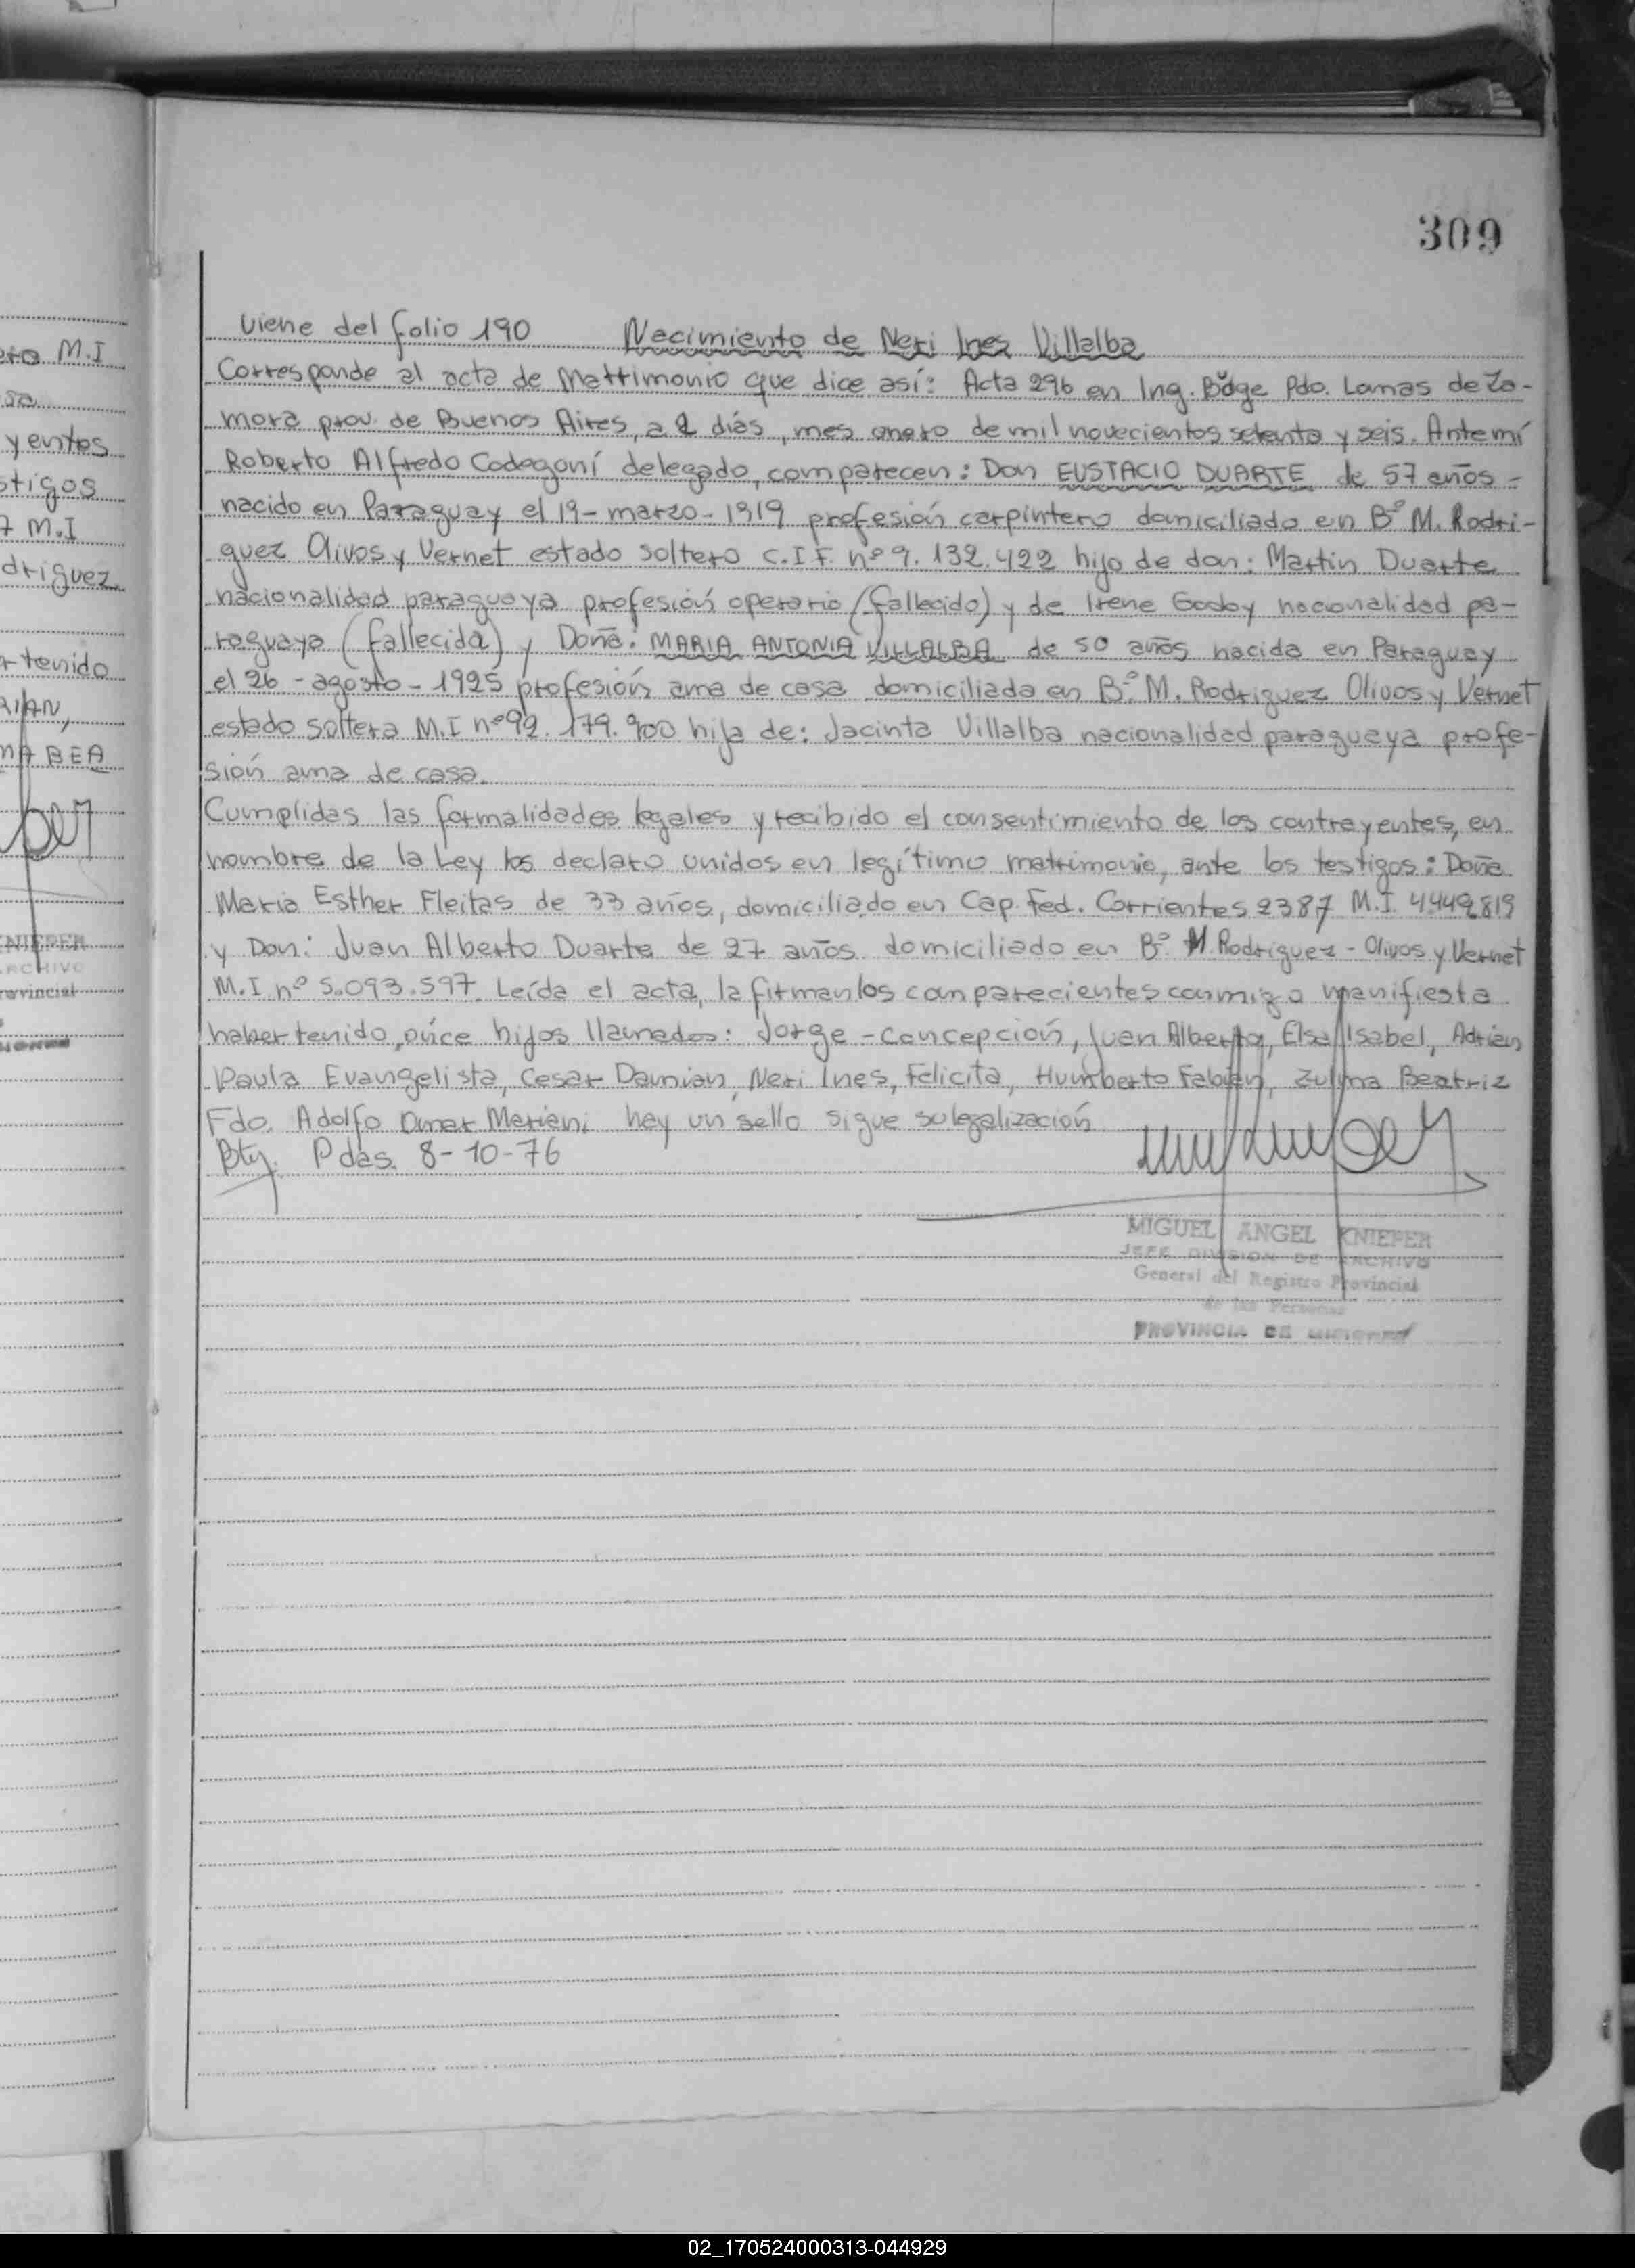 309
ero M.I
sa
yentes
stigos
7 M.I
driguez
r tenido
RIAN,
MA BEA
KNIEPER
ARCHIVO
Provincial
viene del folio 190 Nacimiento de Neri Ines Villalba
Corresponde al acta de Matrimonio que dice así: Acta 296 en Ing. Bdge Pdo. Lomas de Za-
mora prov. de Buenos Aires, a 2 días, mes enero de mil novecientos setenta y seis. Ante mí
Roberto Alfredo Codegoní delegado, comparecen: Don EUSTACIO DUARTE de 57 años -
nacido en Paraguay el 19-marzo-1919 profesión carpintero domiciliado en Bº M. Rodri-
guez Olivos y Vernet estado soltero C.I.F. nº 9.132.422 hijo de don: Martin Duarte
nacionalidad paraguaya profesión operario (fallecido) y de Irene Godoy nacionalidad pa-
raguaya (fallecida) y Doña: MARIA ANTONIA VILLALBA de 50 años nacida en Paraguay
el 26 - agosto - 1925 profesión ama de casa domiciliada en Bº M. Rodriguez Olivos y Vernet
estado soltera M.I nº 92.179.900 hija de: Jacinta Villalba nacionalidad paraguaya profe-
sión ama de casa.
Cumplidas las formalidades legales y recibido el consentimiento de los contrayentes, en
nombre de la Ley los declaro unidos en legítimo matrimonio, ante los testigos: Doña
Maria Esther Fleitas de 33 años, domiciliado en Cap. Fed. Corrientes 2387 M.I. 4.449.819
y Don: Juan Alberto Duarte de 27 años domiciliado en Bº M. Rodriguez - Olivos y Vernet
M.I. nº 5.093.597. Leída el acta, la firman los comparecientes conmigo manifiesta
haber tenido hijos llamados: Jorge - Concepción, Juan Alberto, Elsa Isabel, Adrian
Paula Evangelista, Cesar Damian, Neri Ines, Felicita, Humberto Fabian, Zulma Beatriz
Fdo. Adolfo Omar Mariani hay un sello sigue su legalización
Pdas. 8-10-76
MIGUEL ANGEL KNIEPER
JEFE DIVISION DE ARCHIVO
General del Registro Provincial
de las Personas
PROVINCIA DE MISIONES
02_170524000313-044929